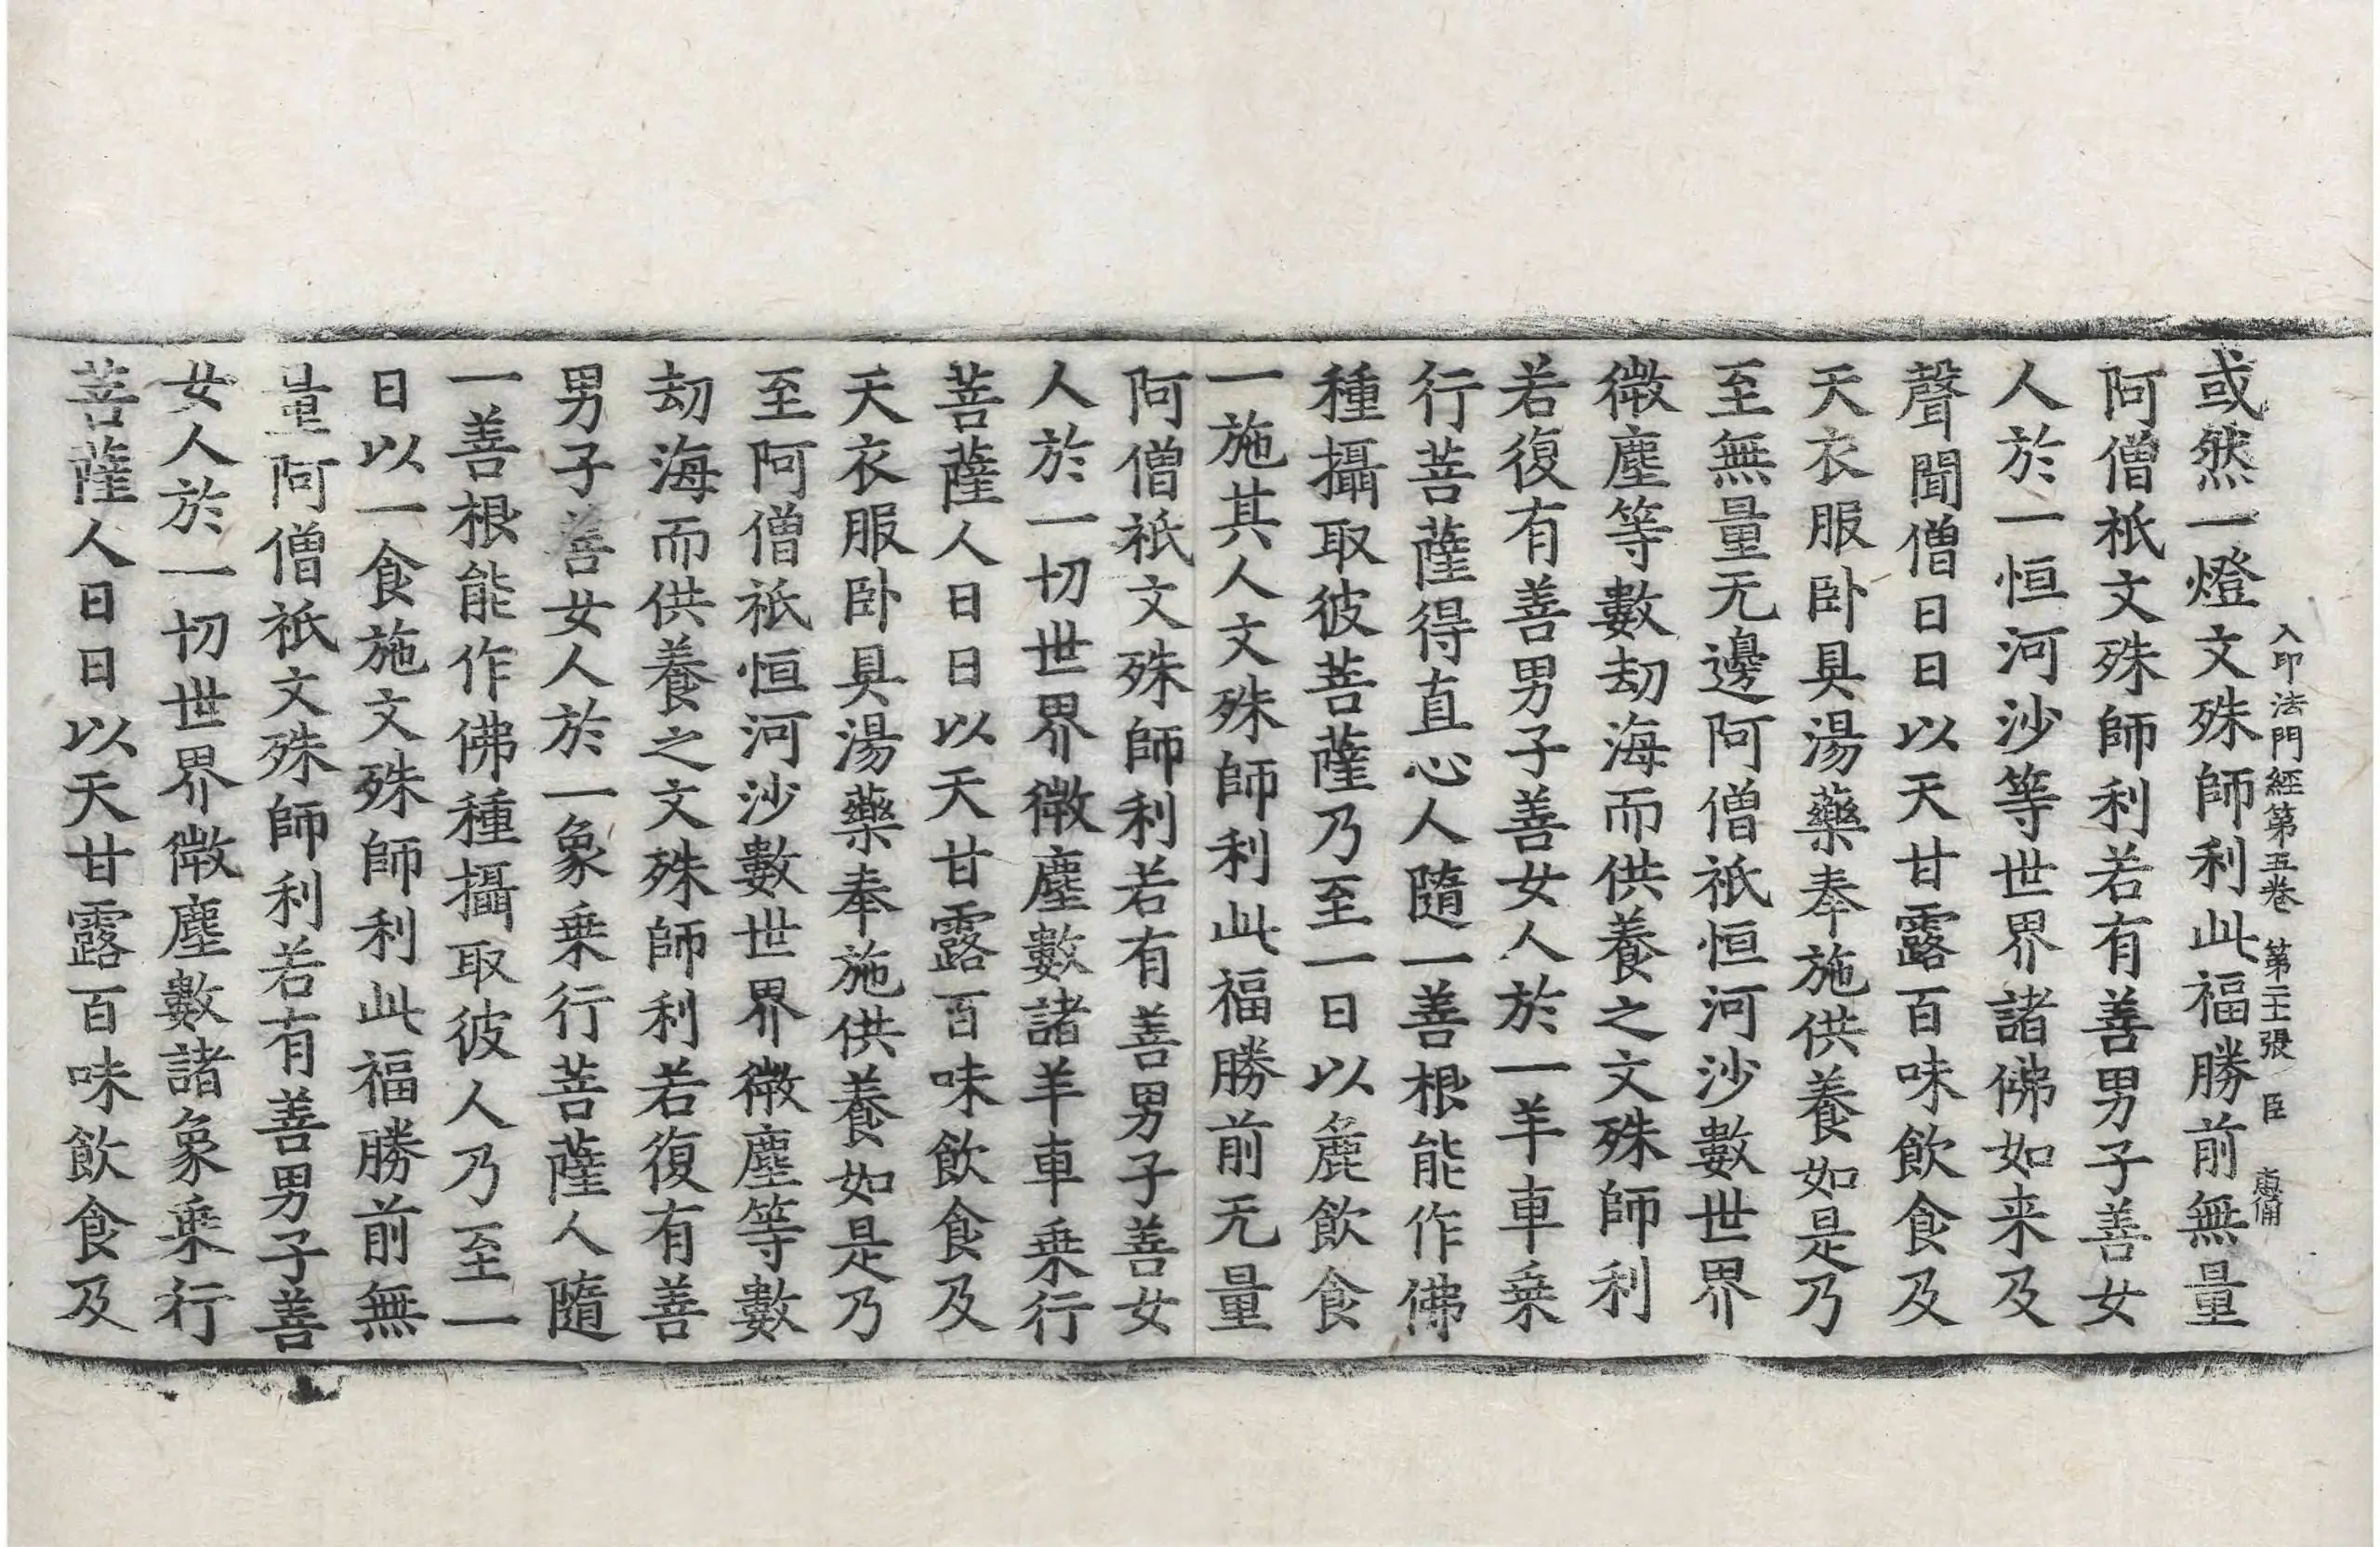 入印法門經第五卷 第二十張 臣
或然一燈文殊師利此福勝前無量
阿僧祇文殊師利若有善男子善女
人於一恒河沙等世界諸佛如来及
聲聞僧日日以天甘露百味飲食及
天衣服卧具湯藥奉施供養如是乃
至無量无邊阿僧祇恒河沙數世界
微塵等數劫海而供養之文殊師利
若復有善男子善女人於一羊車乗
行菩薩得直心人隨一善根能作佛
種攝取彼菩薩乃至一日以麁飲食
一施其人文殊師利此福勝前无量
阿僧祇文殊師利若有善男子善女
人於一切世界微塵數諸羊車乗行
菩薩人日日以天甘露百味飲食及
天衣服卧具湯藥奉施供養如是乃
至阿僧祇恒河沙數世界微塵等數
劫海而供養之文殊師利若復有善
男子善女人於一象乗行菩薩人隨
一善根能作佛種攝取彼人乃至一
日以一食施文殊師利此福勝前無
量阿僧祇文殊師利若有善男子善
女人於一切世界微塵數諸象乗行
菩薩人日日以天甘露百味飲食及